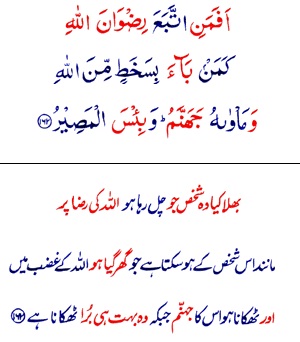 اَفَمَنِ اتَّبَعَ رِضْوَانَ اللّٰهِ
كَمَنْۢ بَآءَ بِسَخَطٍ مِّنَ اللّٰهِ
وَمَاْوٰىهُ جَهَنَّمُ ؕ وَبِئْسَ الْمَصِيْرُ ﴿۱۶۲﴾
بھلا کیا وہ شخص جو چل رہا ہو اللہ کی رضا پر
مانند اس شخص کے ہوسکتا ہے جو گھر گیا ہو اللہ کے غضب میں
اور ٹھکانا ہو اس کا جہنّم جبکہ وہ بہت ہی بُرا ٹھکانا ہے ﴿۱۶۲﴾